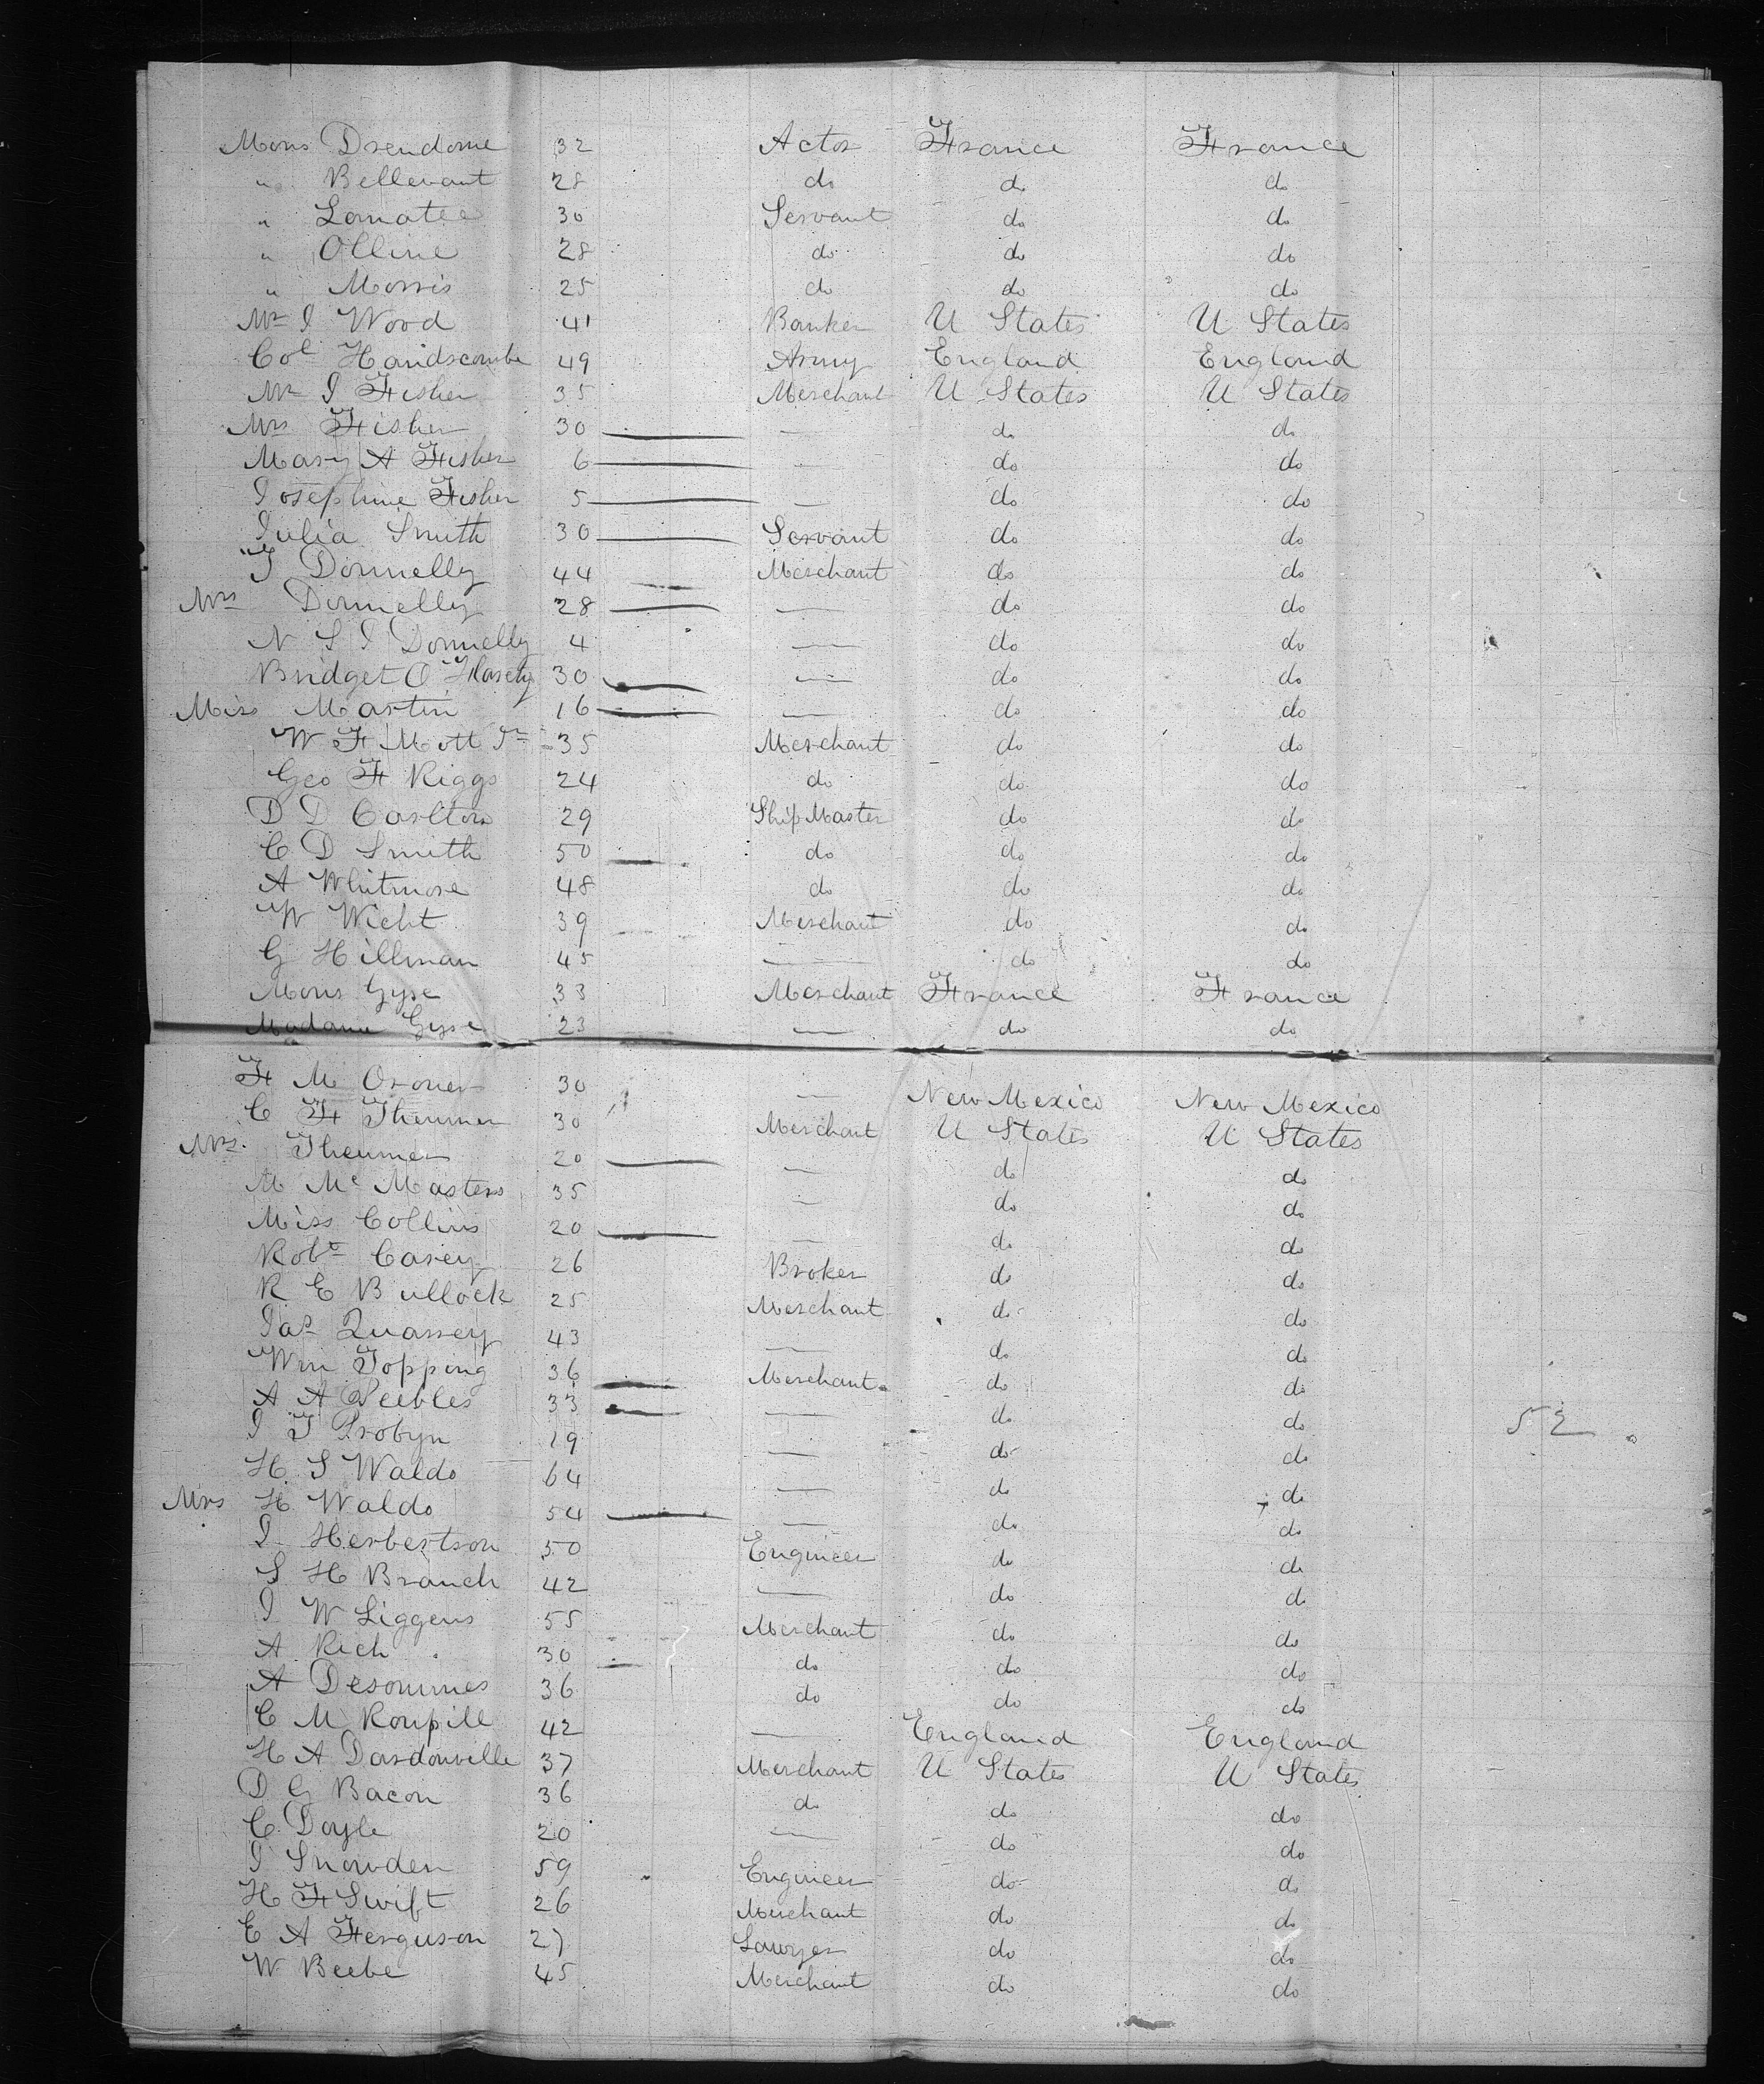 Mons Drendome 32 Actor France France
" Bellevant 28 do do do
" Lamatee 30 Servant do do
" Olline 28 do do do
" Morris 25 do do do
Mr I Wood 41 Banker U States U States
Col Handscombe 49 Army England England
Mr I Fisher 35 Merchant U States U States
Mrs Fisher 30 — — do do
Mary A Fisher 6 — — do do
Josephine Fisher 5 — — do do
Julia Smith 30 — Servant do do
T Donnelly 44 Merchant do do
Mrs Donnelly 28 — — do do
N S I Donnelly 4 — do do
Bridget O' 30 — — do do
Miss Martin 16 — — do do
W F Mott Jr 35 Merchant do do
Geo F Riggs 24 do do do
D D Carlton 29 Ship Master do do
C D Smith 50 do do do
A Whitmore 48 do do do
W Wicht 39 Merchant do do
G Hillman 45 — do do
Mons Gyse 33 Merchant France France
Madame Gyse 23 — do do
F M Oroner 30 — New Mexico New Mexico
C F Theumer 30 Merchant U States U States
Mrs Theumer 20 — — do do
M Mc Masters 35 — do do
Miss Collins 20 — — do do
Robt Casey 26 Broker do do
R E Bullock 25 Merchant do do
Jas Quassey 43 — do do
Wm Topping 36 Merchant do do
A A Peebles 33 — do do 52
I T Probyn 19 — do do
H S Waldo 64 — do do
Mrs H Waldo 54 — — do do
I Herbertson 50 Engineer do do
S H Branch 42 — do do
I W Liggens 55 Merchant do do
A Rich 30 do do do
A Desommes 36 do do do
C M Roupill 42 — England England
H A Dardonville 37 Merchant U States U States
D G Bacon 36 do do do
C Doyle 20 — do do
I Snowden 59 Engineer do do
H F Swift 26 Merchant do do
E A Ferguson 27 Lawyer do do
W Beebe 45 Merchant do do